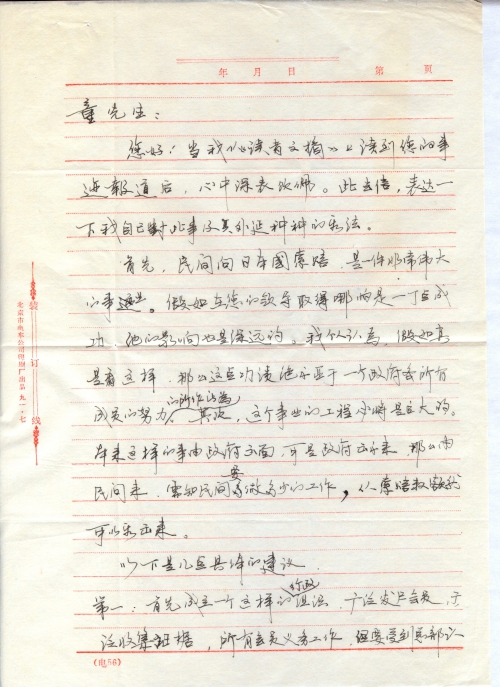 年 月 日 第 页
童先生：
您好！当我从《读者文摘》上读到您的事
迹报道后，心中深表钦佩。此去信，表达一
下我自己对此事及其外延种种的看法。
首先，民间向日本国索赔，是一件非常伟大
的事。假如在您的领导取得哪怕是一丁点成
功，他的影响也是深远的。我个人认为，假如真
是有这样，那么这点功绩绝不亚于一个政府或所有
成员的努力的所作所为。其次，这个事业的工程也将是巨大的。
本来这样的事由政府出面，可是政府不出来，那么由
民间来，需知民间要做多少的工作，从索赔
可以看出来。
以下是几点具体的建议
第一：首先成立一个这样的行政组织，广泛发展会员，广
泛收集证据，所有会员义务工作，但要受到总部
装订线
北京市电车公司印刷厂出品 九一·七
(电58)